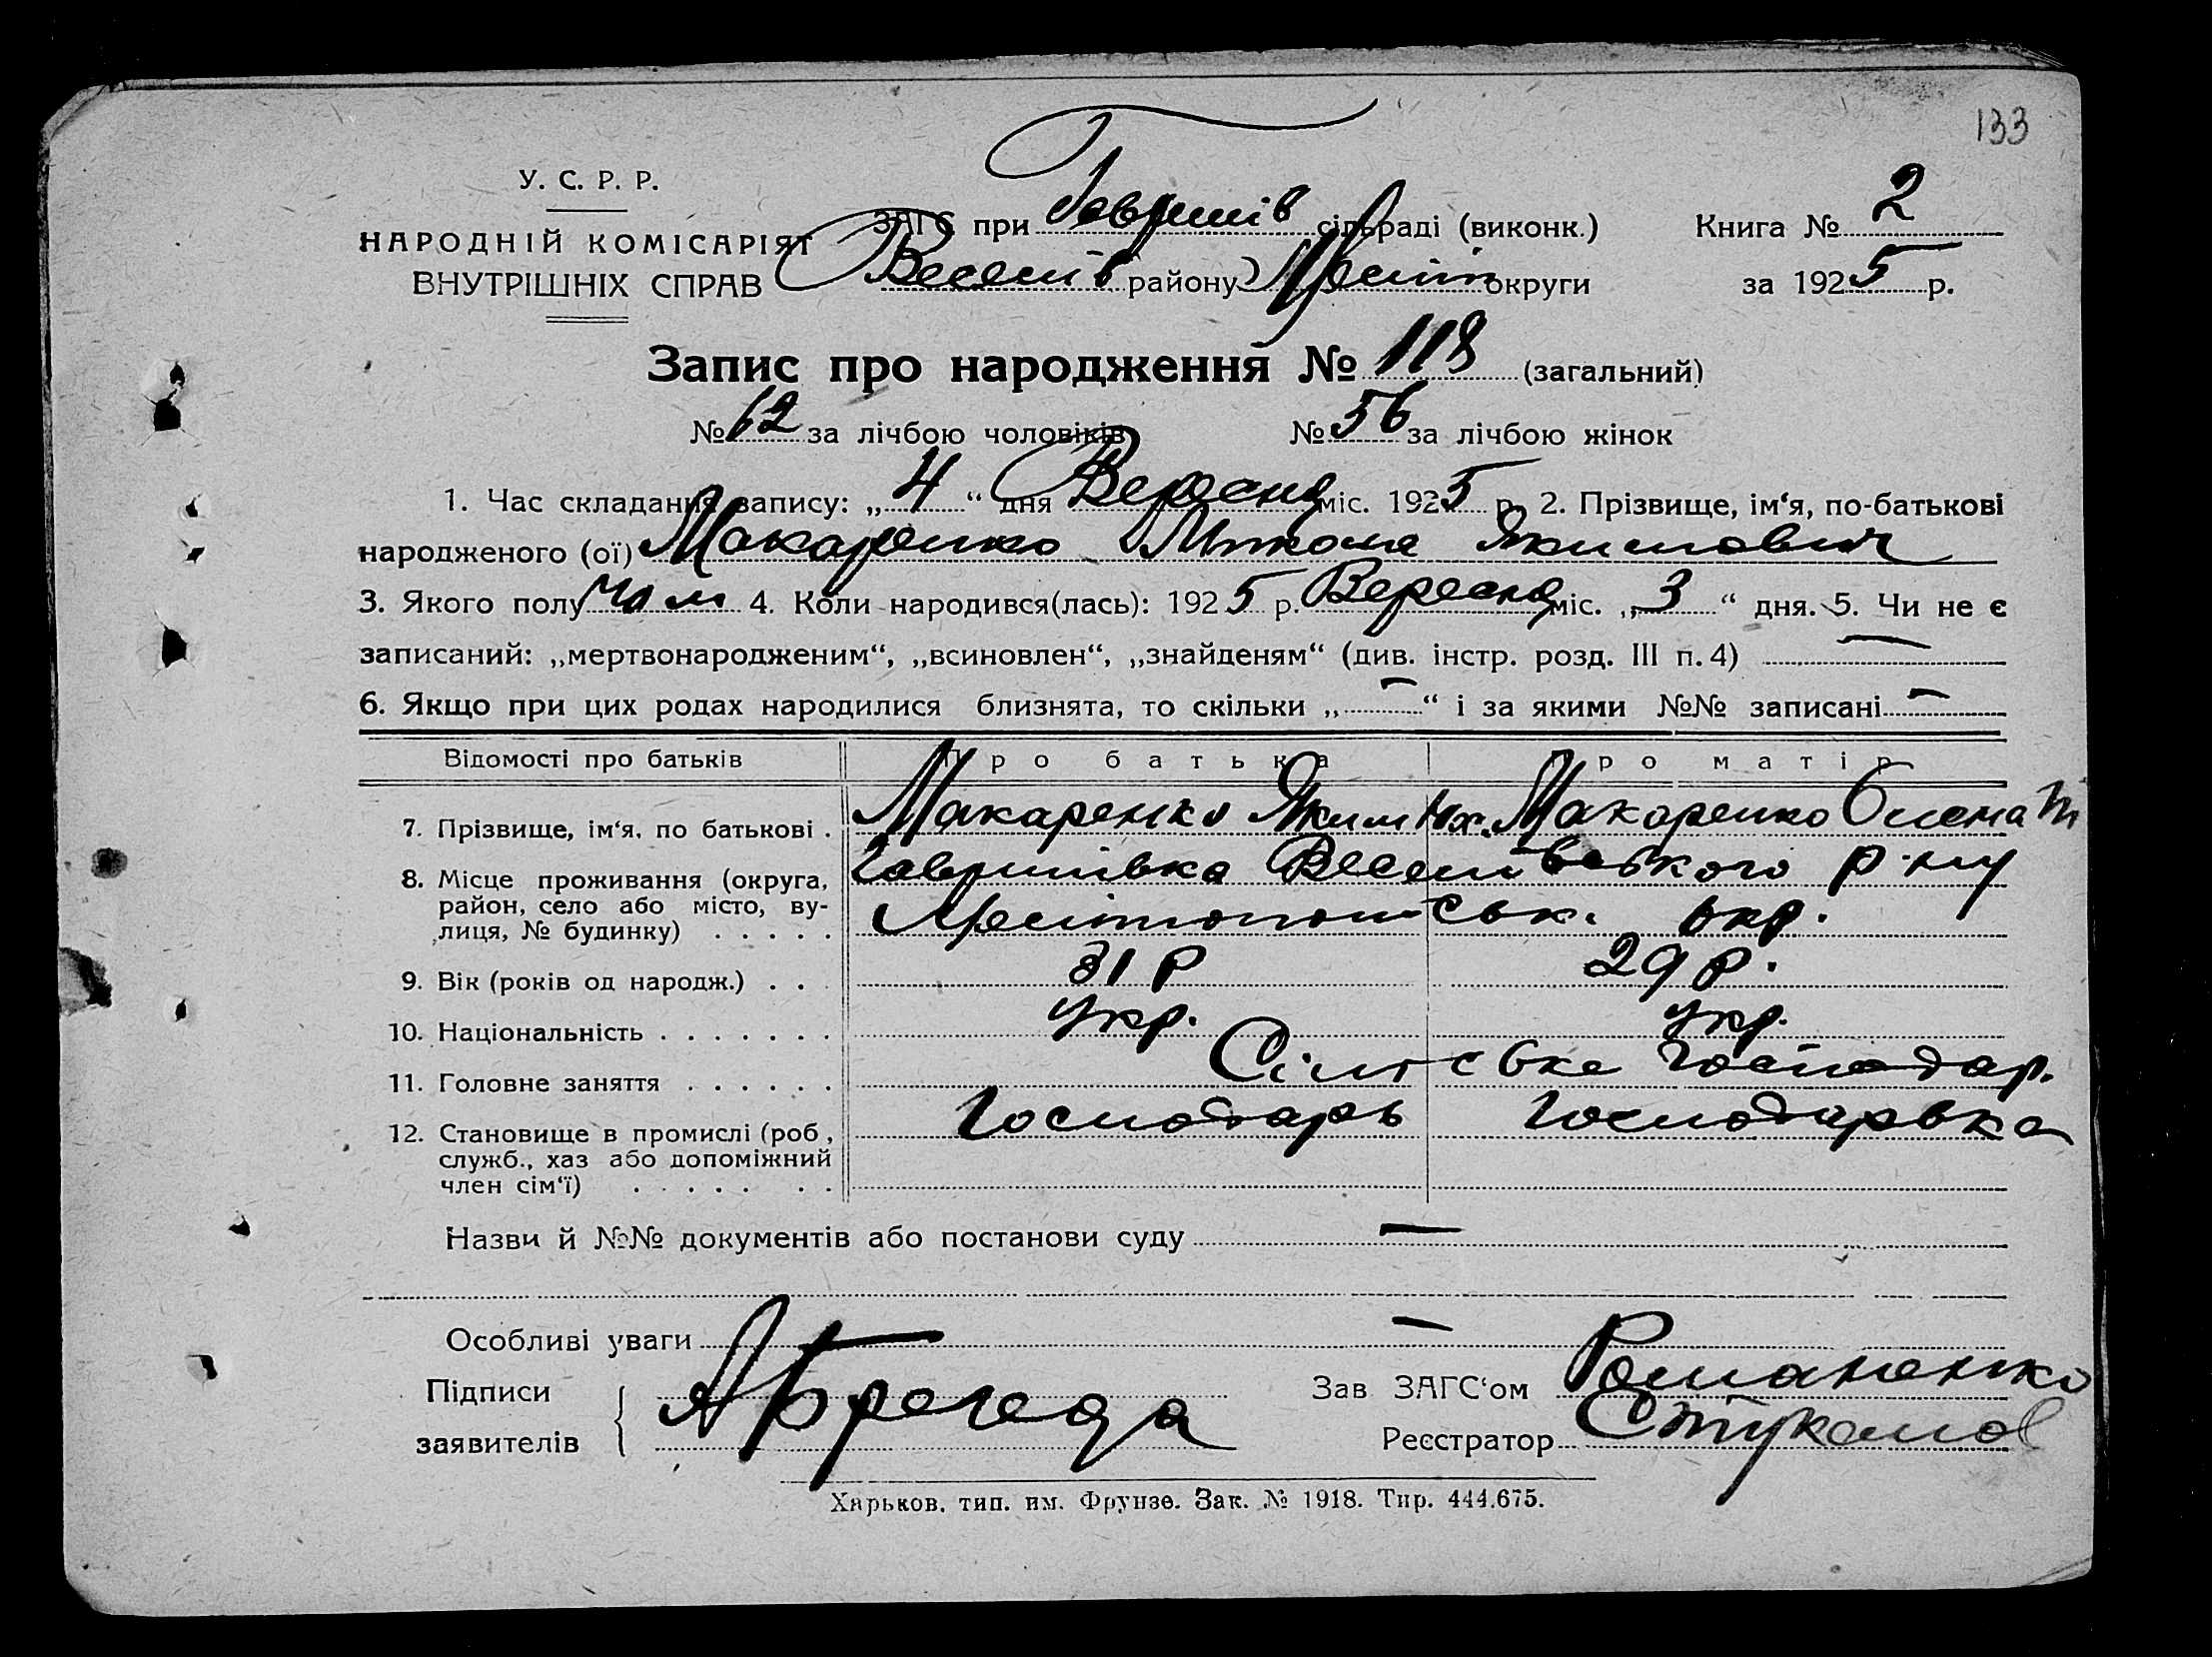 133
У. С. Р. Р.
НАРОДНІЙ КОМІСАРІЯТ
ВНУТРІШНІХ СПРАВ
ЗАГС при Гаврилів сільраді (виконк.) Книга № 2
Веселів району Меліт округи за 1925 р.
Запис про народження № 118 (загальний)
№ 62 за лічбою чоловіків № 56 за лічбою жінок
1. Час складання запису: „4“ дня Вересня міс. 1925 р. 2. Прізвище, ім‘я, по-батькові
народженого (ої) Макаренко Микола Якимович
3. Якого полу чол 4. Коли народився(лась): 1925 р. Вересня міс. „3“ дня. 5. Чи не є
записаний: „мертвонародженим“, „всиновлен“, „знайденям“ (див. інстр. розд. III п. 4) —
6. Якщо при цих родах народилися близнята, то скільки „—“ і за якими №№ записані —
Відомості про батьків Про батька Про матір
7. Прізвище, ім‘я, по батькові . Макаренко Яким Юх. Макаренко Олена
8. Місце проживання (округа, Гаврилівка Веселівського р-ну
район, село або місто, ву-
лиця, № будинку) . . . . . Мелітопольськ. окр.
9. Вік (років од народж.) . . . 31 р 29 р.
10. Національність . . . . . . . укр. укр.
11. Головне заняття . . . . . . Сільське господар.
12. Становище в промислі (роб , Господарь Господарька
служб., хаз або допоміжний
член сім‘ї) . . . . . . .
Назви й №№ документів або постанови суду —
Особливі уваги —
Підписи Зав ЗАГС‘ом Романенко
заявителів { Реєстратор
Харьков, тип. им. Фрунзе. Зак. № 1918. Тир. 444.675.